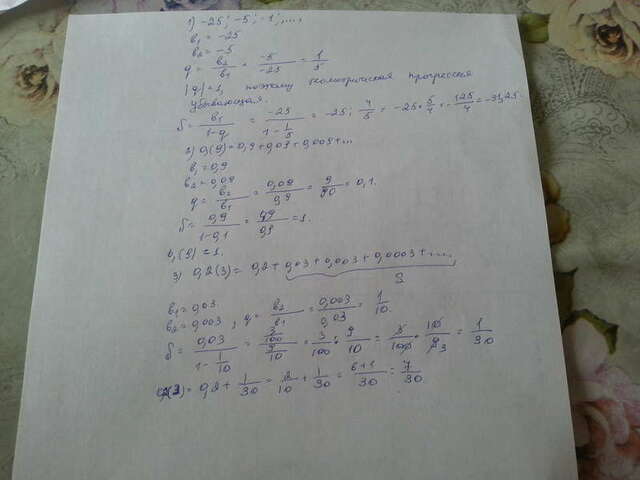 1) -25; -5; -1; ....
b₁ = -25
b₂ = -5
q = b₂/b₁ = -5/-25 = 1/5
|q|<1, поэтому геометрическая прогрессия
убывающая.
S = b₁/(1-q) = -25/(1-1/5) = -25 : 4/5 = -25 * 5/4 = -125/4 = -31,25
2) 0,(9) = 0,9+0,09+0,009+...
b₁ = 0,9
b₂ = 0,09
q = b₂/b₁ = 0,09/0,9 = 9/90 = 0,1.
S = 0,9/(1-0,1) = 0,9/0,9 = 1.
0,(9) = 1.
3) 0,2(3) = 0,2 + 0,03 + 0,003 + 0,0003 + ....
S
b₁ = 0,03
b₂ = 0,003 ; q = b₂/b₁ = 0,003/0,03 = 1/10.
S = 0,03/(1-1/10) = 3/100/9/10 = 3/100 : 9/10 = 3/100 · 10/9 3 = 1/30
= 0,2 + 1/30 = 2/10 + 1/30 = 6+1/30 = 7/30